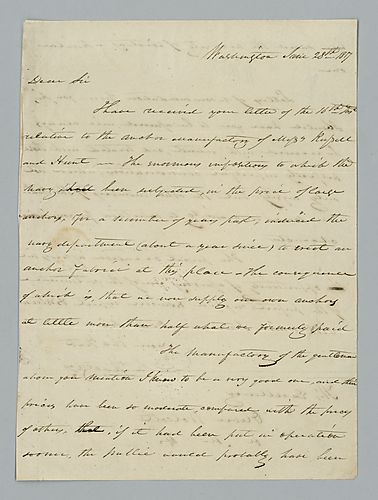 Washington June 28th 1817
Dear Sir
I have received your letter of the 18th Inst
relative to the anchor manufactory of Messrs Russell
and Hunt — The enormous impositions to which the
navy had been subjected, in the price of large
anchors, for a number of years past, induced the
navy department (about a year since) to erect an
anchor Fabrick at this place — The consequence
of which is, that we now supply our own anchors
at little more than half what we formerly paid
The manufactory of the gentlemen
whom you mention I know to be a very good one, and their
prices have been so moderate compared with the prices
of others, that, if it had been put in operation
sooner, the public would probably, have been